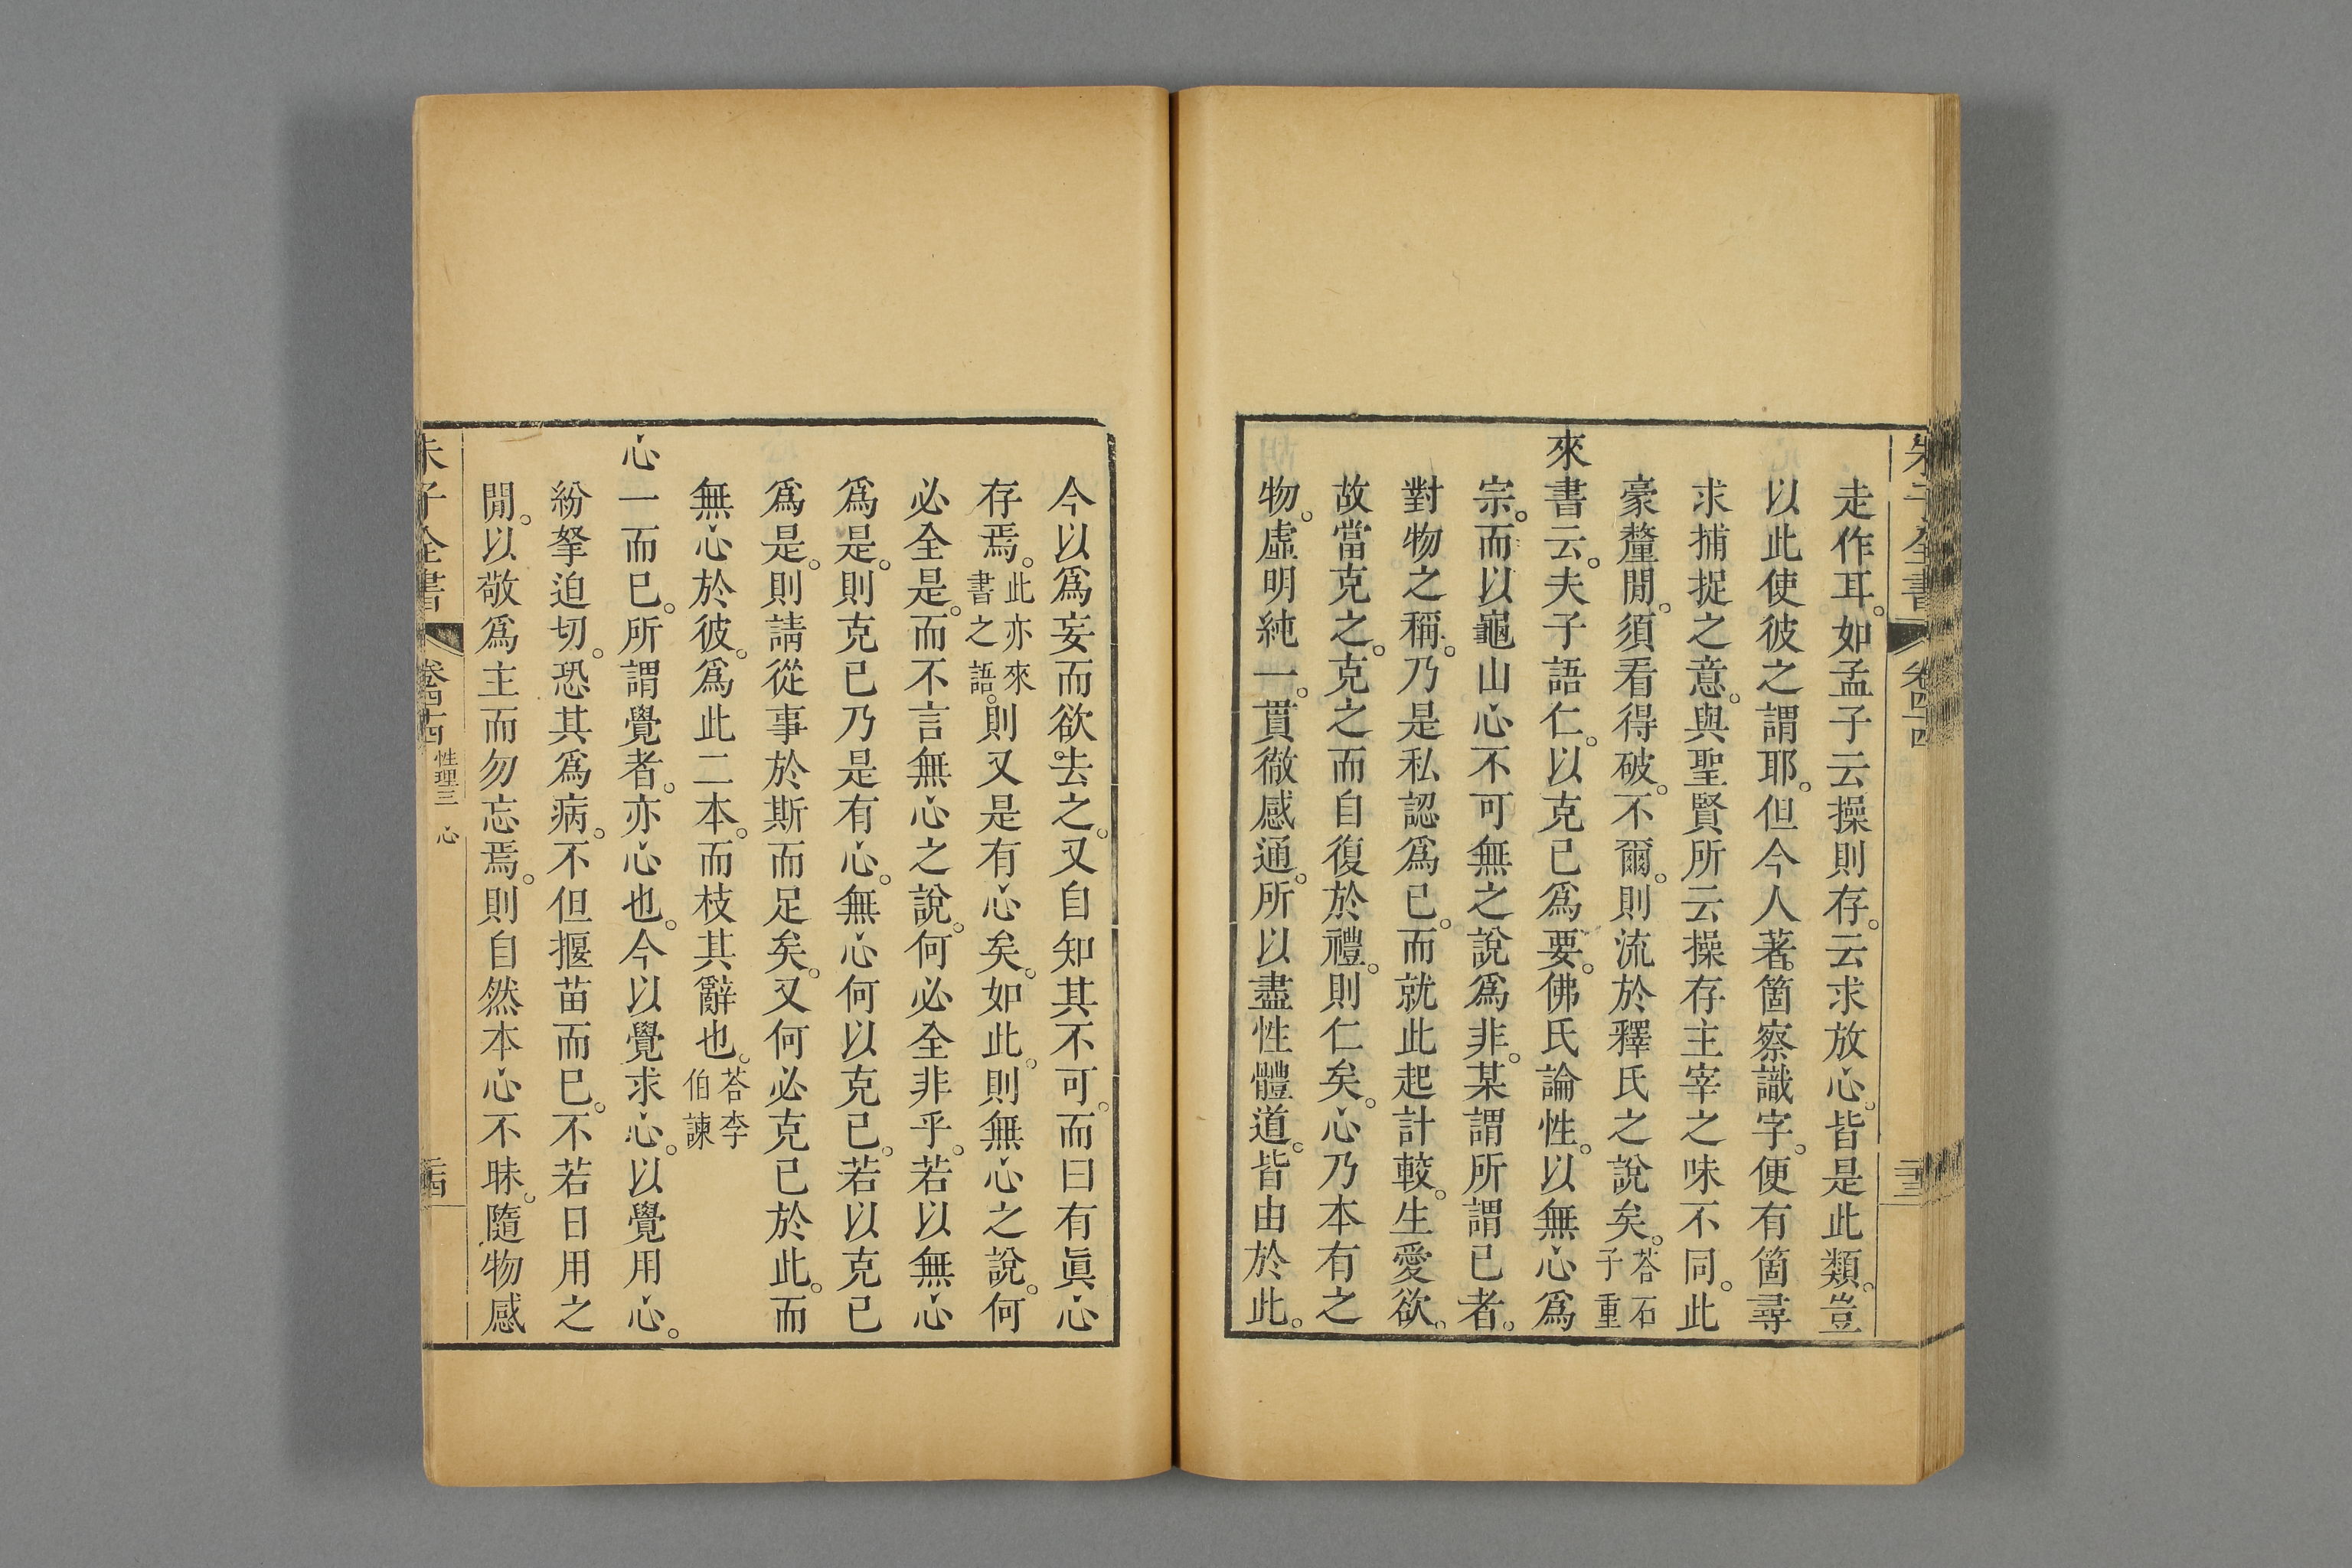 走作耳。如孟子云操則存。云求放心。皆是此類。豈
以此使彼之謂耶。但今人著箇察識字。便有箇尋
求捕捉之意。與聖賢所云操存主宰之味不同。此
豪釐閒。須看得破。不爾。則流於釋氏之說矣。荅石子重
來書云。夫子語仁。以克已爲要。佛氏論性。以無心爲
宗。而以龜山心不可無之說爲非。某謂所謂已者。
對物之稱。乃是私認爲已。而就此起計較。生愛欲。
故當克之。克之而自復於禮。則仁矣。心乃本有之
物。虛明純一。貫徹感通。所以盡性體道。皆由於此。
今以爲妄而欲去之。又自知其不可。而曰有眞心
存焉。此亦來書之語。則又是有心矣。如此。則無心之說。何
必全是。而不言無心之說。何必全非乎。若以無心
爲是。則克已乃是有心。無心何以克已。若以克已
爲是。則請從事於斯而足矣。又何必克已於此。而
無心於彼。爲此二本。而枝其辭也。荅李伯諫
心一而已。所謂覺者。亦心也。今以覺求心。以覺用心。
紛拏迫切。恐其爲病。不但揠苗而已。不若日用之
閒。以敬爲主而勿忘焉。則自然本心不昧。隨物感
朱子全書
卷四十四
性理三 心
二十四